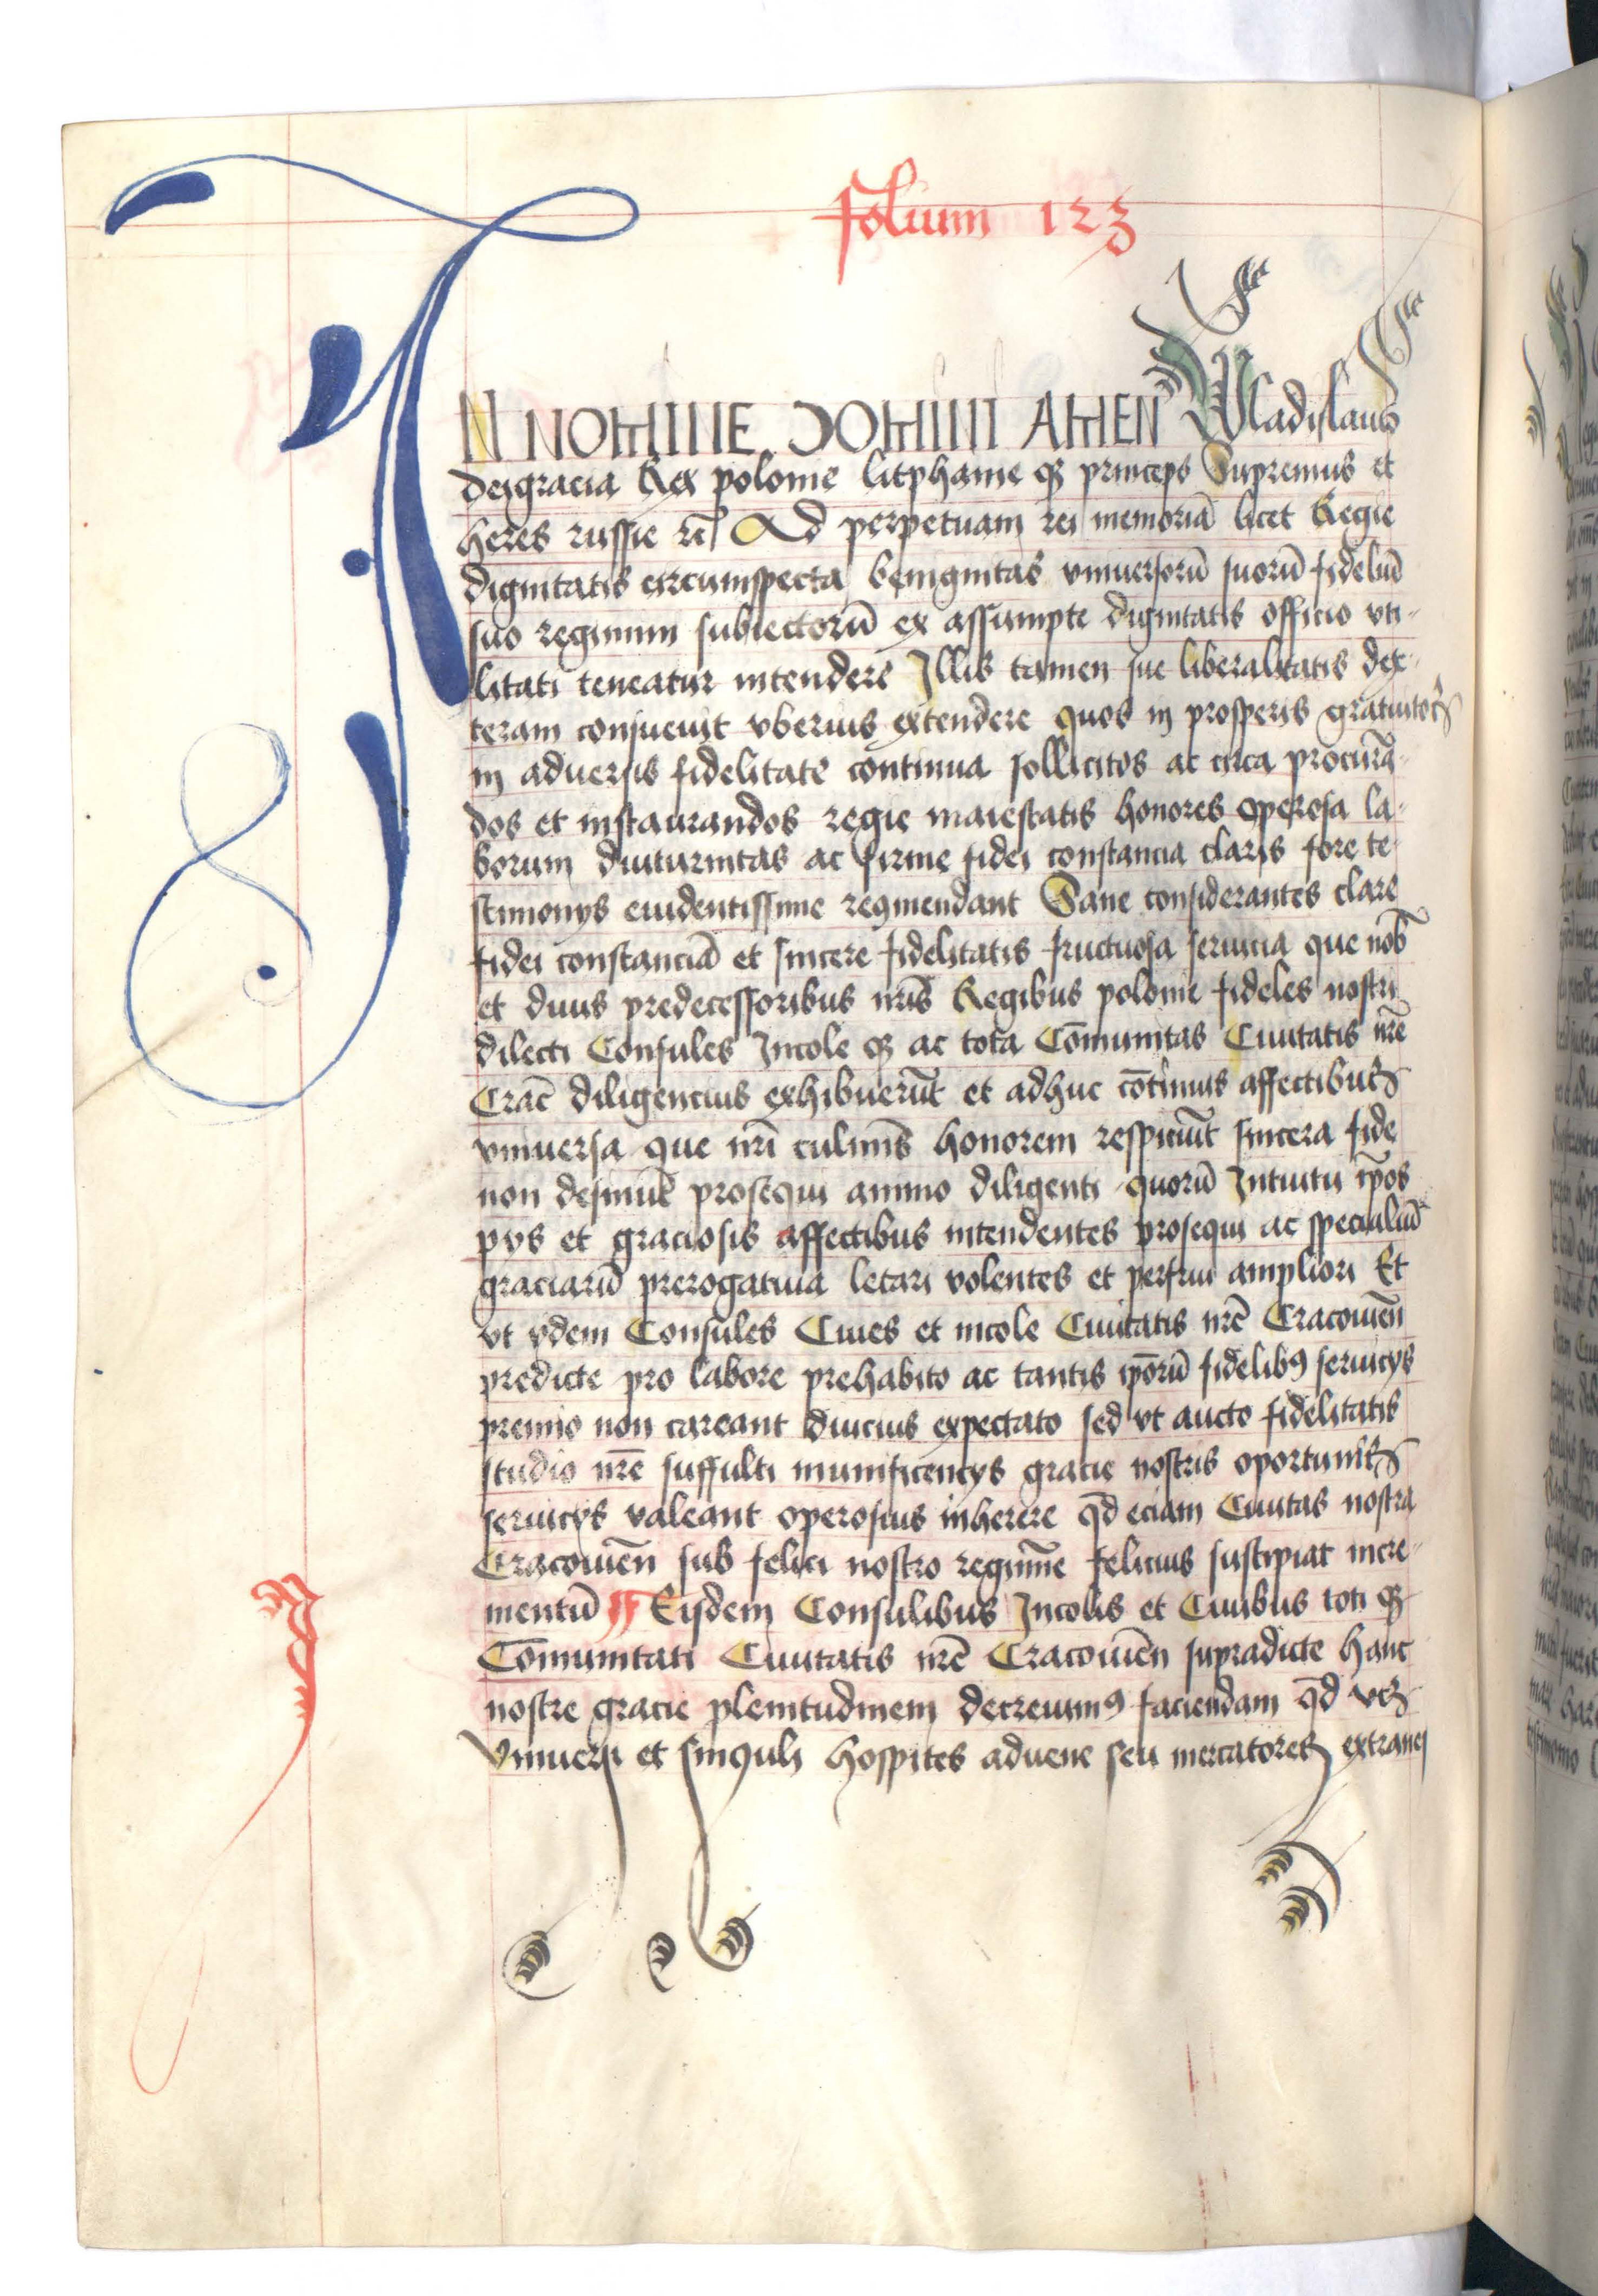 Folium 123
IN NOMINE DOMINI AMEN Wladislaus
dei gracia Rex polonie litphanie qȝ princeps Supremus et
heres russie rc̄ Ad perpetuam rei memoriā licet Regie
dignitatis circumspecta benignitas vniuersorū suorū fideliū
suo regimini subiectorū ex assumpte dignitatis officio vti-
litati teneatur intendere Illis tamen sue liberalitatis dex-
teram consueuit vberius extendere quos in prosperis gratuitos
in aduersis fidelitate continua sollicitos ac circa procurā-
dos et instaurandos regie maiestatis honores operosa la-
borum diuturnitas ac firme fidei constancia claris fore te-
stimonys euidentissime recōmendant Sane considerantes clare
fidei constanciā et sincere fidelitatis fructuosa seruicia que nob̄
et diuis predecessoribus nr̄is Regibus polonie fideles nostri
dilecti Consules Incole qȝ ac tota Cōmunitas Ciuitatis nr̄e
Crac̄ diligencius exhibuerūt et adhuc cōtinuis affectibus
vniuersa que nr̄i culmis̄ honorem respiciūt sincera fide
non desinūt prosequi animo diligenti quorū Intuitu ip̄os
pys et graciosis affectibus intendentes prosequi ac specialiū
graciarū prerogatiua letari volentes et perfrui ampliori Et
vt ydem Consules Ciues et incole Ciuitatis nr̄e Cracouien̄
predicte pro labore prehabito ac tantis ip̄orū fidelibꝰ seruicys
premio non careant diucius expectato sed vt aucto fidelitatis
studio nr̄e suffulti munificencys gracie nostris oportunis
seruicys valeant operosius inherere qd̄ eciam Ciuitas nostra
Cracouien̄ sub felici nostro regimīe felicius suscipiat incre-
mentū Eisdem Consulibus Incolis et Ciuibus toti qȝ
Cōmunitati Ciuitatis nr̄e Cracouien̄ supradicte hanc
nostre gracie plenitudinem decreuimꝰ faciendam qd̄ vcȝ
Vniuersi et singuli hospites aduene seu mercatores extranei